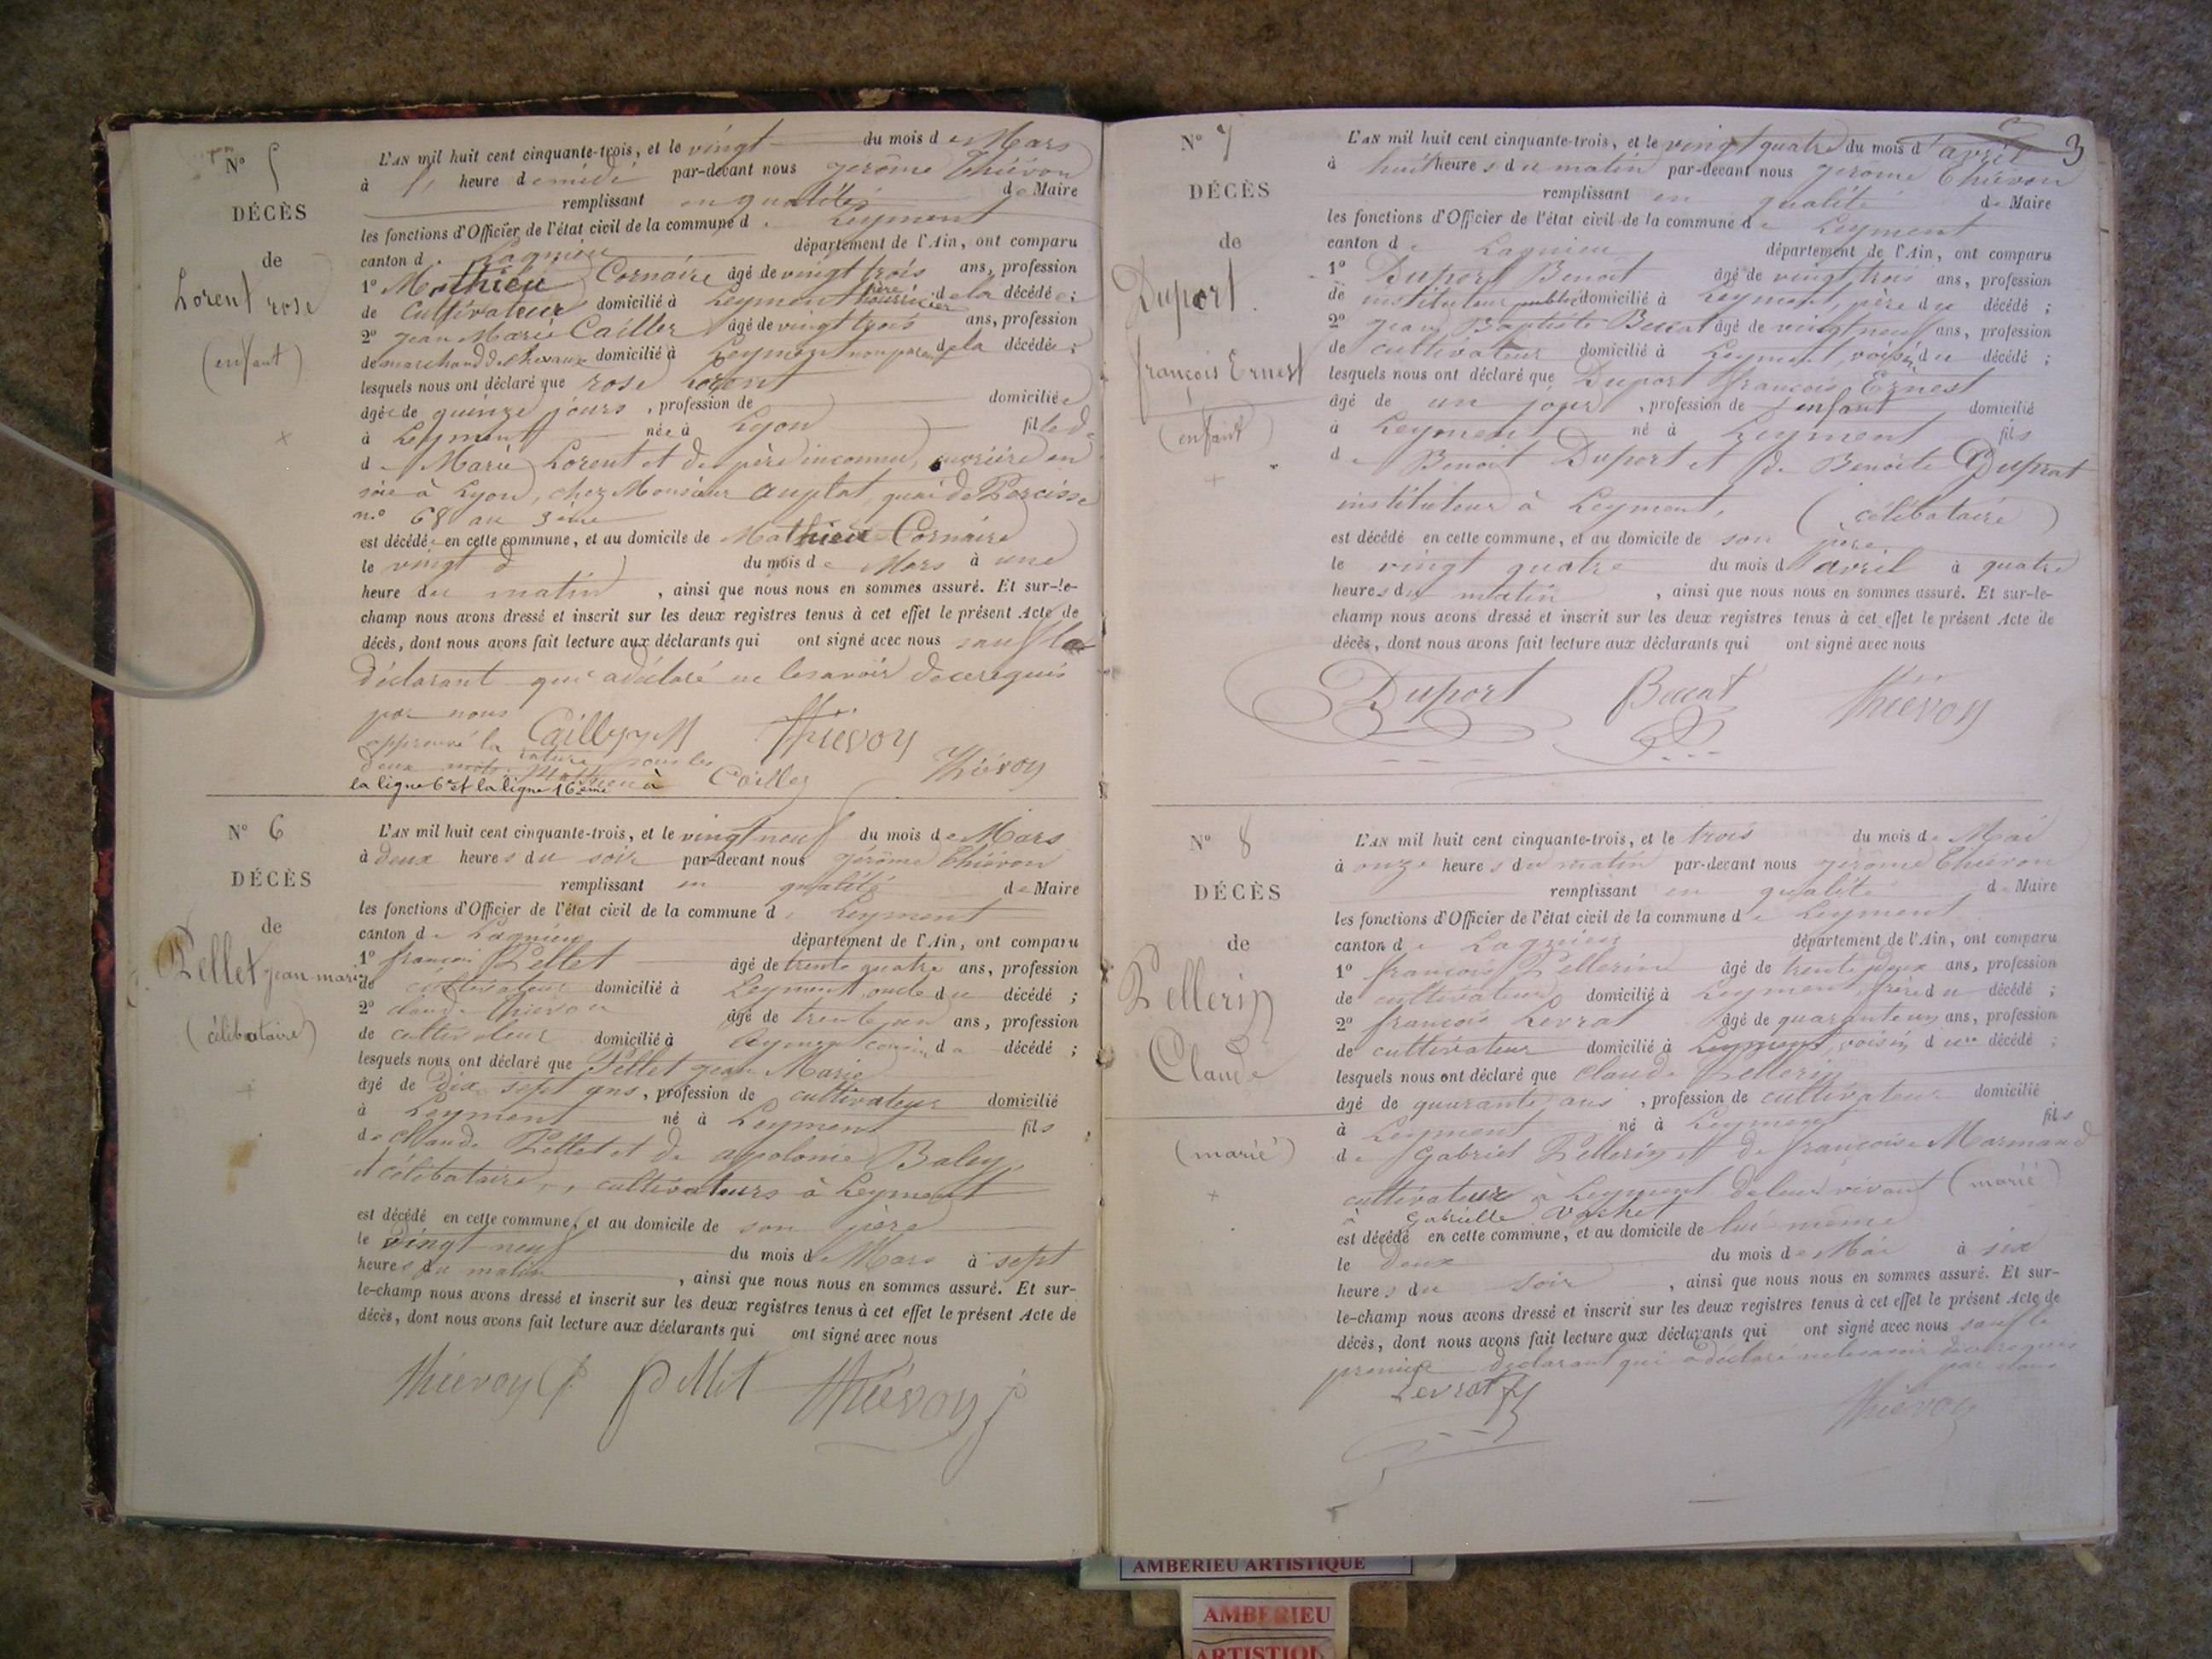 N° 5
DÉCÈS
de
Lorent rose
(enfant)
L'AN mil huit cent cinquante-trois, et le vingt du mois de Mars
à heure de midi par-devant nous jerôme Thiévon
remplissant en qualités de Maire
les fonctions d'Officier de l'état civil de la commune de Leyment
canton de Lagnieu département de l'Ain, ont comparu
1° Mathieu Cornaire âgé de vingt trois ans, profession
de Cultivateur domicilié à Leyment père nourricier de la décédée;
2° jean Marie Cailler âgé de vingt trois ans, profession
de marchand de chevaux domicilié à Leyment non parent de la décédée;
lesquels nous ont déclaré que rose Lorent
âgée de quinze jours, profession de domiciliée
à Leyment née à Lyon fille de
de Marie Lorent et de père inconnu, ouvrière en
soie à Lyon, chez Monsieur Auplat, quai de
n.° 68 au 3ème
est décédée en cette commune, et au domicile de Mathieu Cornaire
le vingt d du mois de Mars à une
heure du matin, ainsi que nous nous en sommes assuré. Et sur-le-
champ nous avons dressé et inscrit sur les deux registres tenus à cet effet le présent Acte de
décès, dont nous avons fait lecture aux déclarants qui ont signé avec nous sauf le
déclarant qui a déclaré ne le savoir de ce requis
par nous
approuvé la rature sous les
deux mots: Mathieu à
la ligne 6e et la ligne 16ème
Cailler Thiévon
Cailler Thiévon
N° 6
DÉCÈS
de
Pellet jean-marie
(célibataire)
L'AN mil huit cent cinquante-trois, et le vingt neuf du mois de Mars
à deux heures du soir par-devant nous jérôme Thiévon
remplissant en qualité de Maire
les fonctions d'Officier de l'état civil de la commune de Leyment
canton de Lagnieu département de l'Ain, ont comparu
1° françois Pellet âgé de trente quatre ans, profession
de cultivateur domicilié à Leyment, oncle du décédé;
2° claude Thiévon âgé de trente un ans, profession
de cultivateur domicilié à Leyment cousin du décédé;
lesquels nous ont déclaré que Pellet jean Marie
âgé de dix sept ans, profession de cultivateur domicilié
à Leyment né à Leyment fils
de Claude Pellet et de apolonie Baley
et célibataire, cultivateurs à Leyment
est décédé en cette commune, et au domicile de son père
le vingt neuf du mois de Mars à sept
heures du matin, ainsi que nous nous en sommes assuré. Et sur-
le-champ nous avons dressé et inscrit sur les deux registres tenus à cet effet le présent Acte de
décès, dont nous avons fait lecture aux déclarants qui ont signé avec nous
Thiévon pellet Thiévon
3
N° 7
DÉCÈS
de
Duport
françois Ernest
(enfant)
L'AN mil huit cent cinquante-trois, et le vingt quatre du mois d'avril
à huit heures du matin par-devant nous jerôme Thiévon
remplissant en qualité de Maire
les fonctions d'Officier de l'état civil de la commune de Leyment
canton de Lagnieu département de l'Ain, ont comparu
1° Duport Benoit âgé de vingt trois ans, profession
de instituteur public domicilié à Leyment, père du décédé;
2° jean Baptiste Bucat âgé de vingt neuf ans, profession
de cultivateur domicilié à Leyment, voisin du décédé;
lesquels nous ont déclaré que Duport françois Ernest
âgé de un jour, profession de enfant domicilié
à Leyment né à Leyment fils
de Benoit Duport et de Benoite Duprat
instituteur à Leyment, (célibataire)
est décédé en cette commune, et au domicile de son père
le vingt quatre du mois d'avril à quatre
heures du matin, ainsi que nous nous en sommes assuré. Et sur-le-
champ nous avons dressé et inscrit sur les deux registres tenus à cet effet le présent Acte de
décès, dont nous avons fait lecture aux déclarants qui ont signé avec nous
Duport Bucat Thiévon
N° 8
DÉCÈS
de
Pellerin
Claude
(marié)
L'AN mil huit cent cinquante-trois, et le trois du mois de Mai
à onze heures du matin par-devant nous jerôme Thiévon
remplissant en qualité de Maire
les fonctions d'Officier de l'état civil de la commune de Leyment
canton de Lagnieu département de l'Ain, ont comparu
1° françois Pellerin âgé de trente deux ans, profession
de cultivateur domicilié à Leyment, frère du décédé;
2° françois Levrat âgé de quarante un ans, profession
de cultivateur domicilié à Leyment, voisin du décédé;
lesquels nous ont déclaré que claude Pellerin
âgé de quarante ans, profession de cultivateur domicilié
à Leyment né à Leyment fils
de Gabriel Pellerin et de françoise Marmand
cultivateur à Leyment de leur vivant (marié)
à Gabrielle Vachet
est décédé en cette commune, et au domicile de lui même
le deux du mois de Mai à six
heures du soir, ainsi que nous nous en sommes assuré. Et sur-
le-champ nous avons dressé et inscrit sur les deux registres tenus à cet effet le présent Acte de
décès, dont nous avons fait lecture aux déclarants qui ont signé avec nous sauf le
premier déclarant qui a déclaré ne le savoir de ce requis
par nous
Levrat Thiévon
AMBERIEU ARTISTIQUE
AMBERIEU
ARTISTIQU